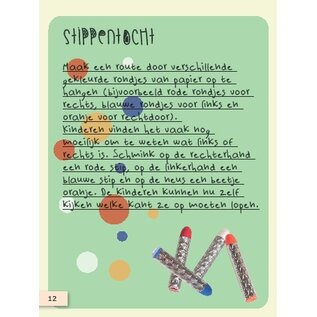 Stippentocht
Maak een route door verschillende
gekleurde rondjes van papier op te
hangen (bijvoorbeeld rode rondjes voor
rechts, blauwe rondjes voor links en
oranje voor rechtdoor).
Kinderen vinden het vaak nog
moeilijk om te weten wat links of
rechts is. Schmink op de rechterhand
een rode stip, op de linkerhand een
blauwe stip en op de neus een beetje
oranje. De kinderen kunnen nu zelf
kijken welke kant ze op moeten lopen.
12